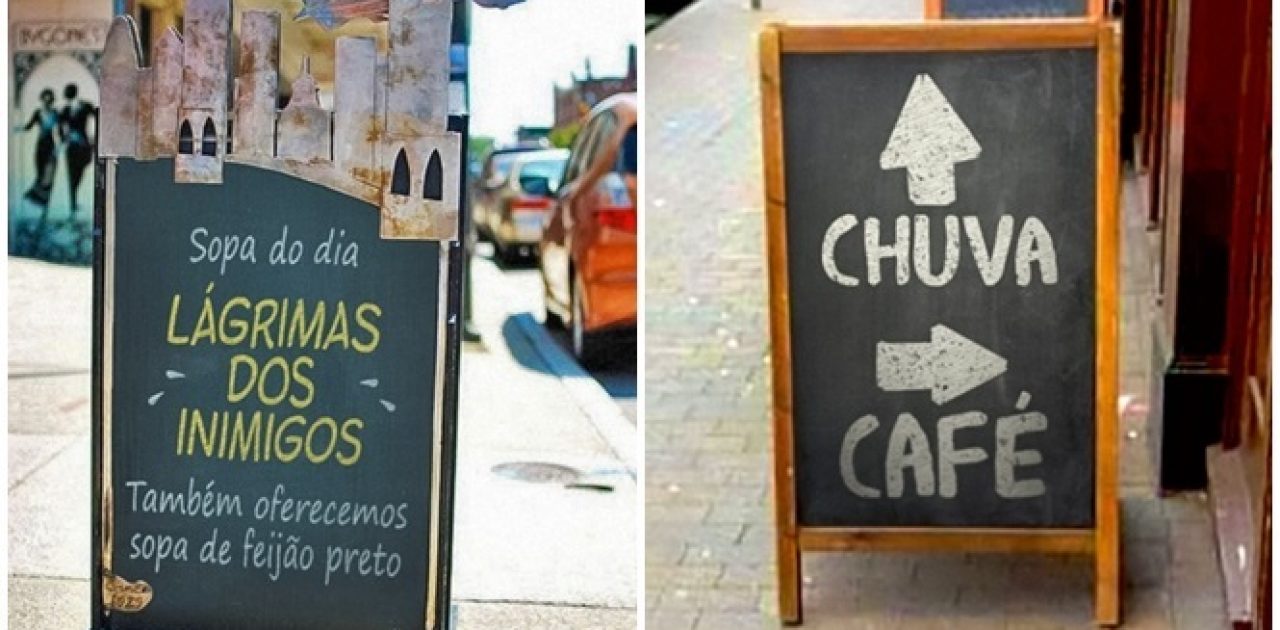 Sopa do dia
LÁGRIMAS
DOS
INIMIGOS
Também oferecemos
sopa de feijão preto
CHUVA
CAFÉ